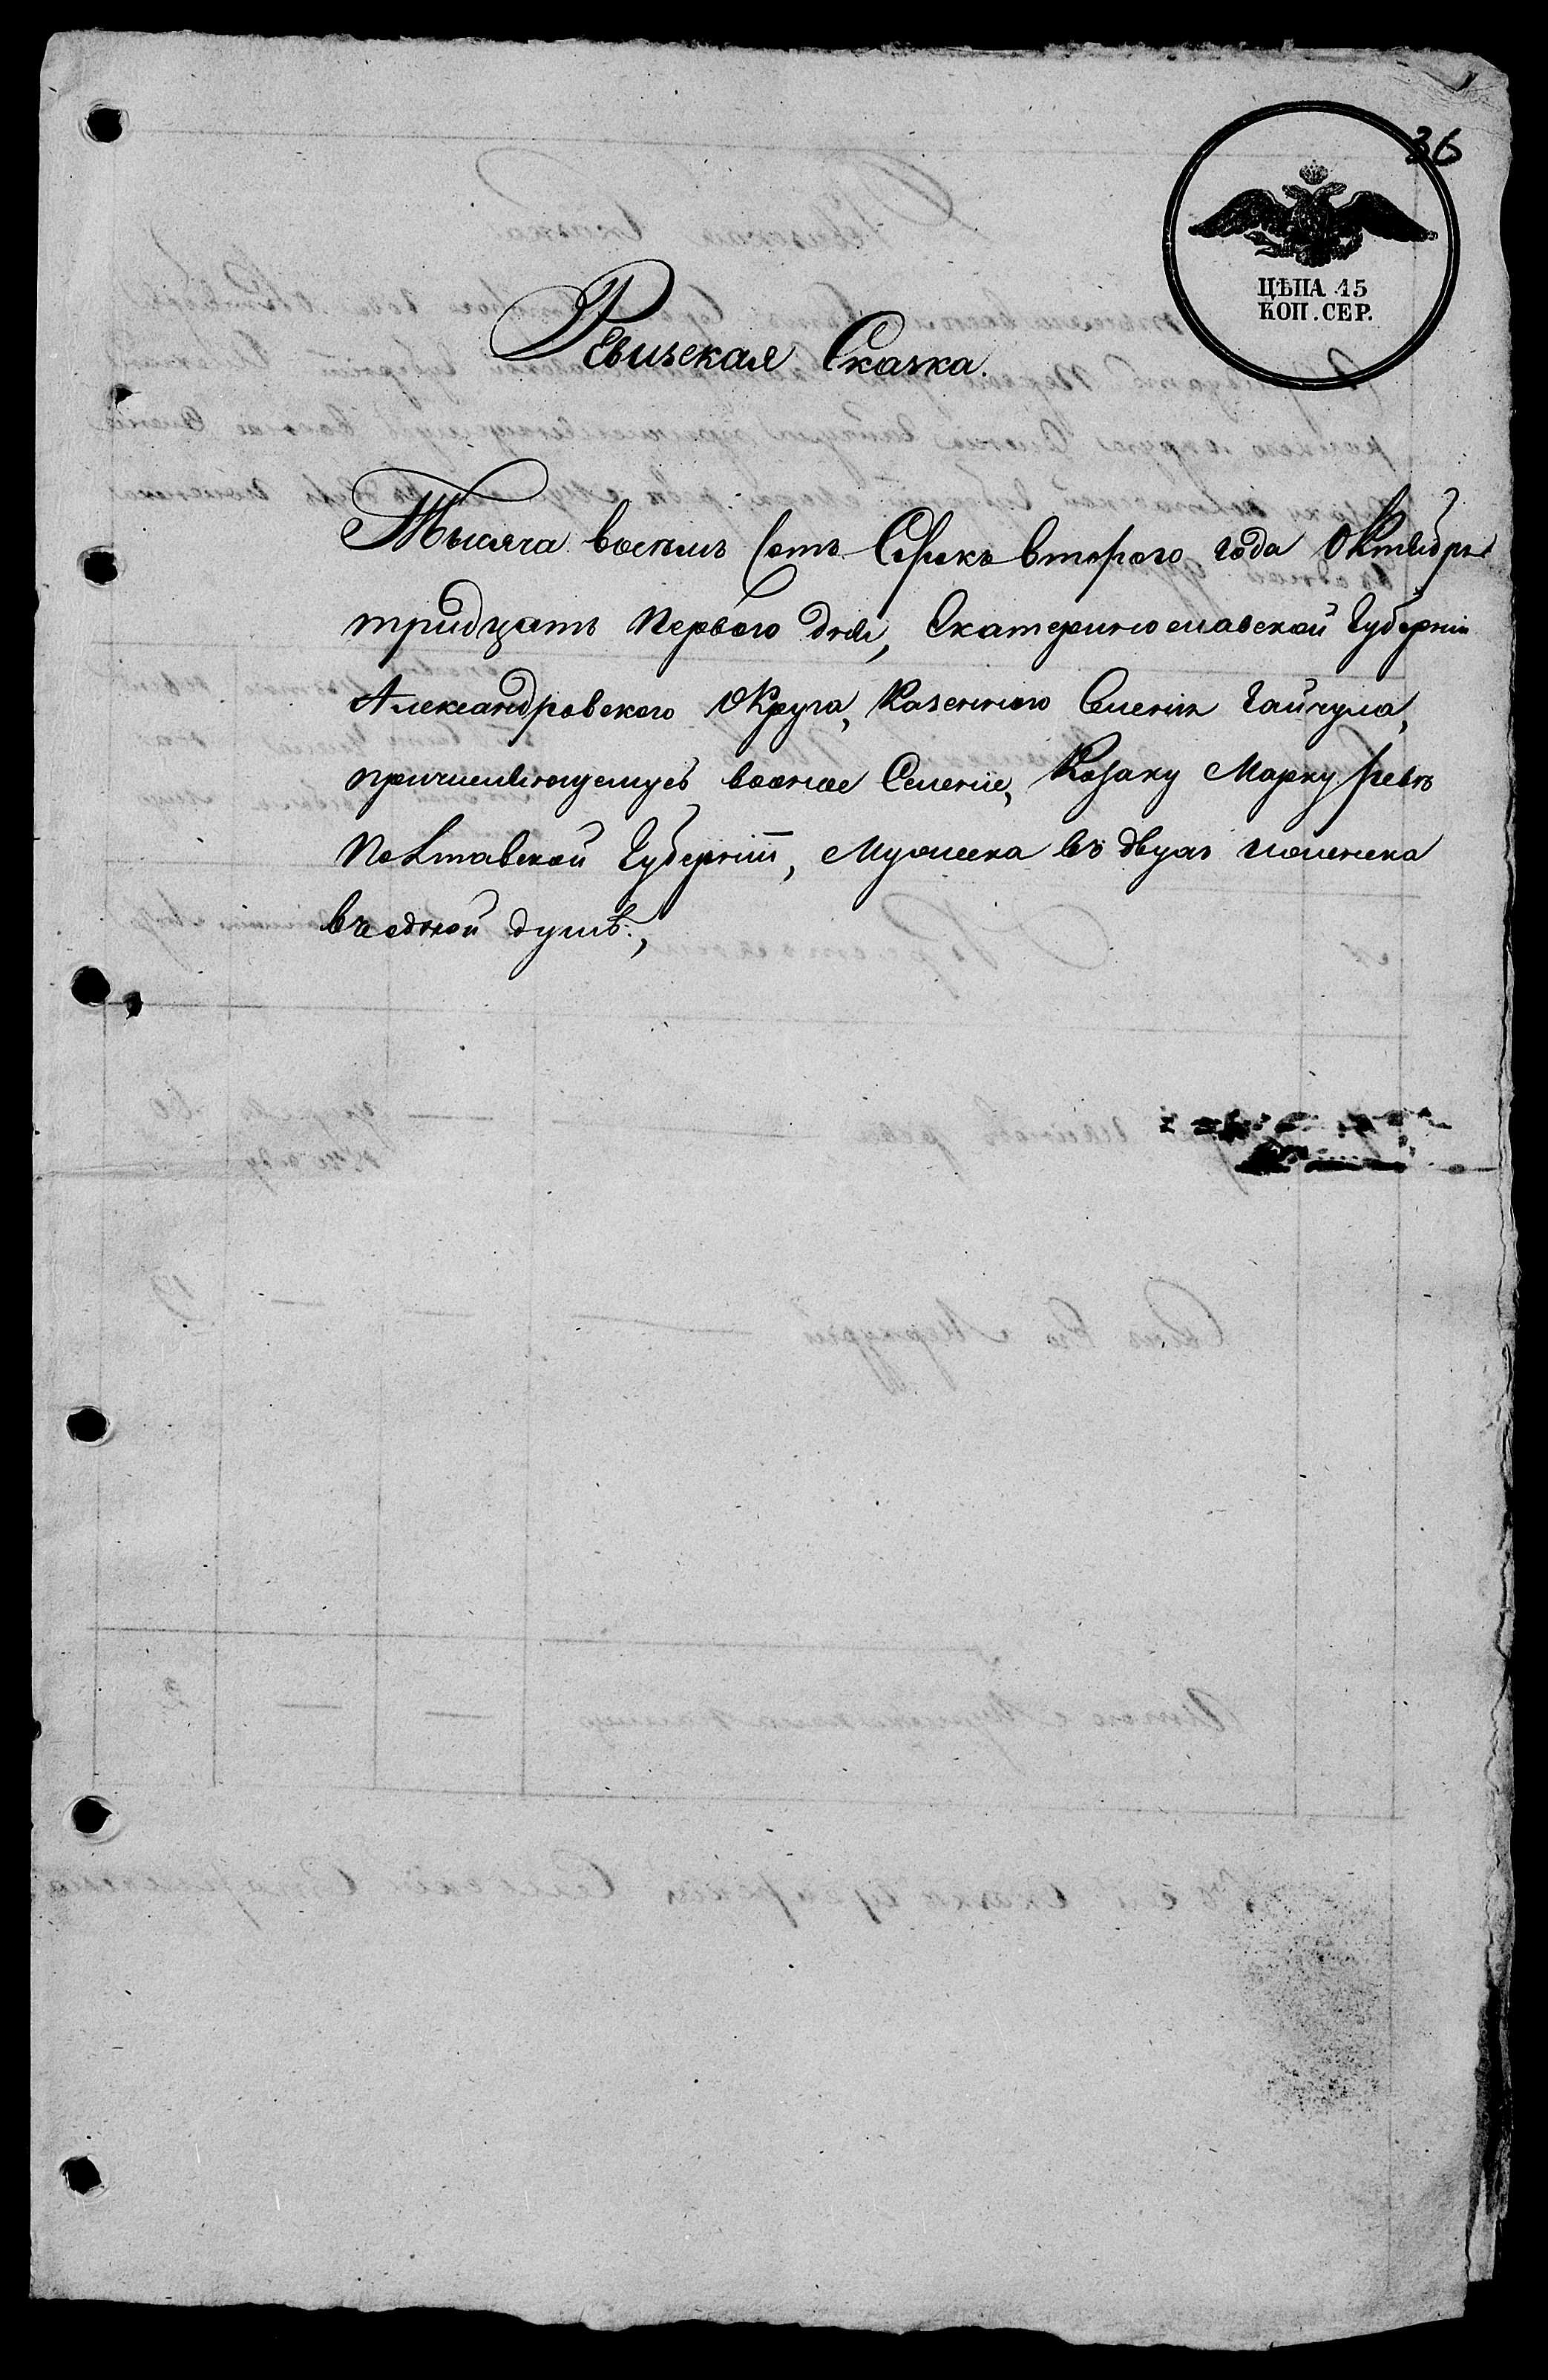 36
ЦѢНА 45
КОП. СЕР.
Ревизская Сказка.
Тысяча восемь сотъ Сорокъ втораго года Октября
тридцать Первого дня, Екатеринославской Губерніи
Александровского Округа, Казенного Селенія Гайчула,
причисляющемусь вооное Селеніе, Козаку Марку
Полтавской Губерніи, Мужеска въ двухъ Женска
въ одной душѣ,